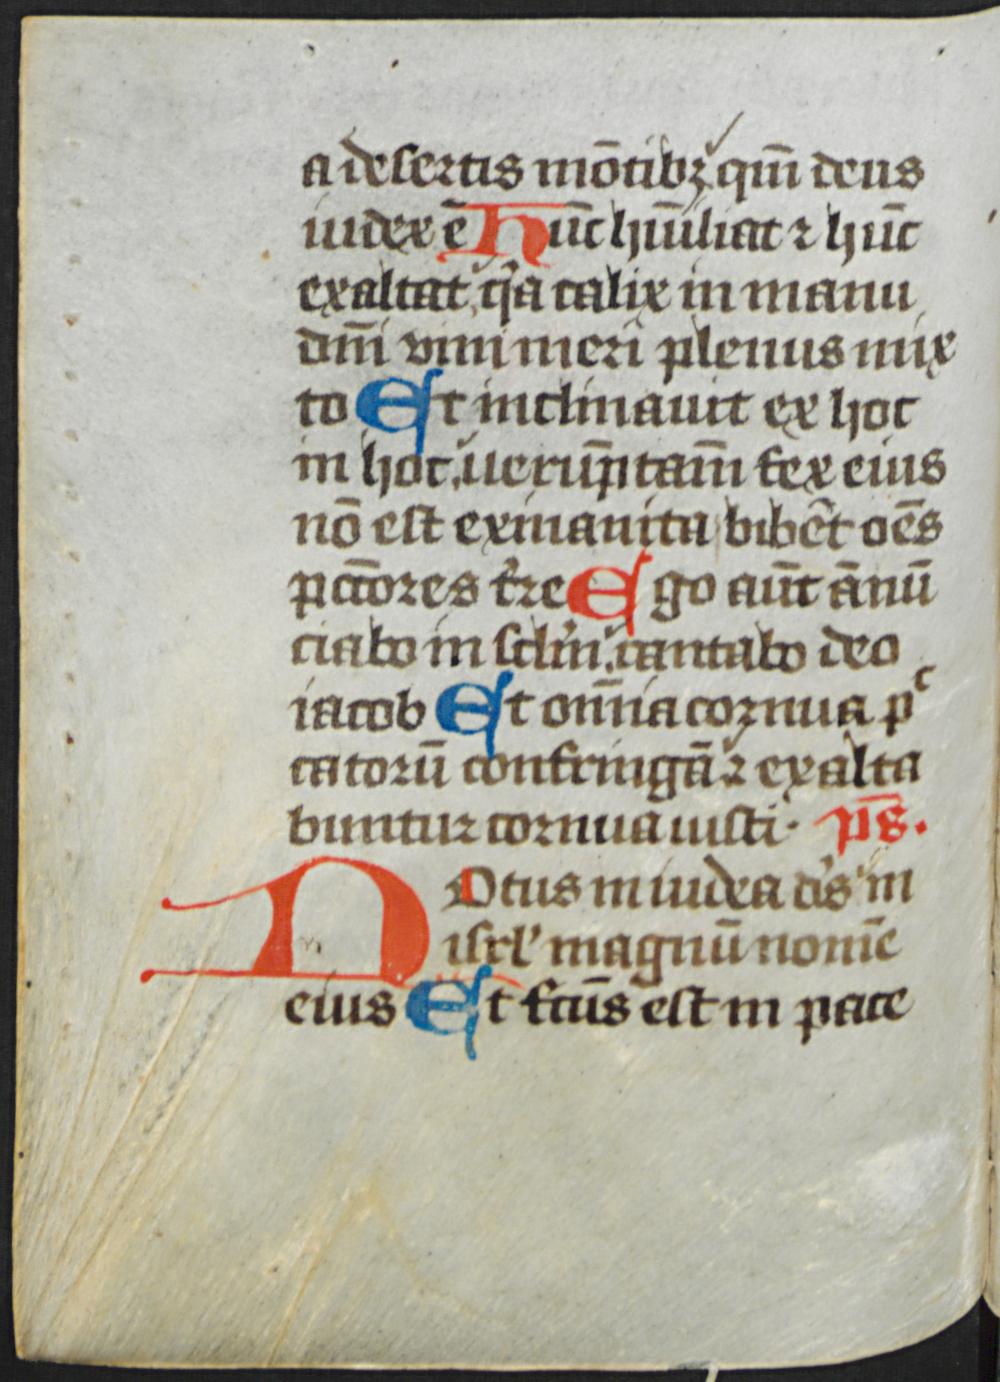 a desertis mōtibꝫ qm̄ deus
iudex ē Hūc hūiliat ⁊ hūc
exaltat, qͥa calix in manu
dn̄i vini meri plenus mix
to Et inclinauit ex hoc
in hoc, uerūp̄tam̄ fex eius
nō est exinanita bibēt oēs
pctōres t̄re Ego aūt ānū
ciabo in sclm̄, cantabo deo
iacob Et om̄ia cornua pᶜ
catorū confringā ⁊ exalta
buntur cornua iusti · p̄s.
NOtus in iudea ds̄ in
isrl' magnū nom̄e
eius Et fctūs est in pace